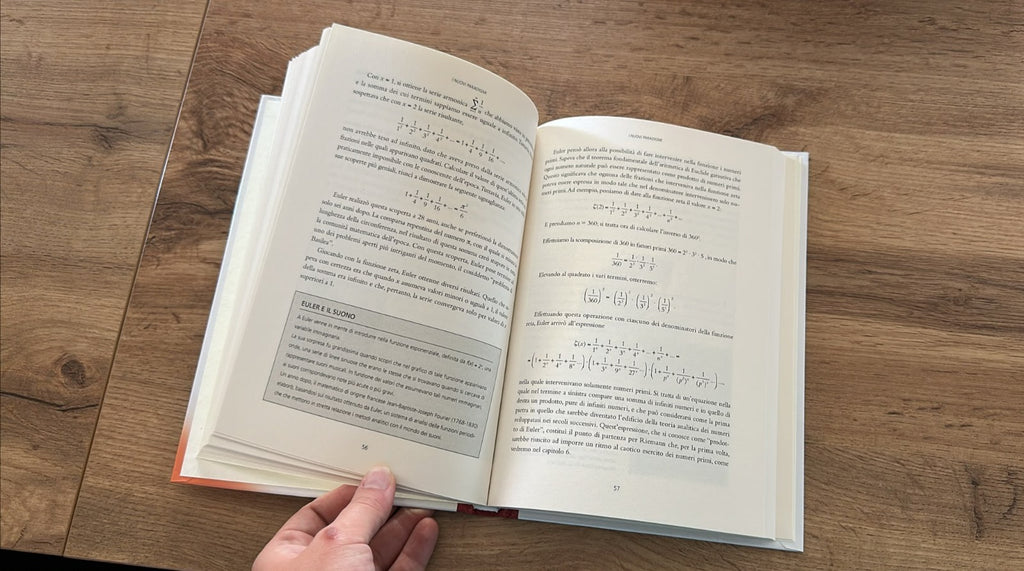 I NUOVI PARADIGMI
Con x = 1, si ottiene la serie armonica ∑ 1/n che abbiamo visto in
e la somma dei cui termini sappiamo essere uguale a infinito.
sospettava che con x = 2 la serie risultante,
1/1² + 1/2² + 1/3² + 1/4² + ... = 1 + 1/4 + 1/9 + 1/16 + ...
non avrebbe teso ad infinito, dato che aveva preso dalla serie armonica
frazioni nelle quali apparivano quadrati. Calcolare il valore di quest'ultima
praticamente impossibile con le conoscenze dell'epoca. Tuttavia, Euler, in una
sue scoperte più geniali, riuscì a dimostrare la seguente uguaglianza:
1 + 1/4 + 1/9 + 1/16 + ... = π²/6
Euler realizzò questa scoperta a 28 anni, anche se perfezionò la dimostrazione
solo sei anni dopo. La comparsa repentina del numero π, con il quale si
lunghezza della circonferenza, nel risultato di questa somma creò stupore in
la comunità matematica dell'epoca. Con questa scoperta, Euler pose termine
uno dei problemi aperti più intriganti del momento, il cosiddetto "problema di
Basilea".
Giocando con la funzione zeta, Euler ottenne diversi risultati. Quello che
peva con certezza era che quando x assumeva valori minori o uguali a 1, il valore
della somma era infinito e che, pertanto, la serie convergeva solo per valori di x
superiori a 1.
EULER E IL SUONO
A Euler venne in mente di introdurre nella funzione esponenziale, definita da f(x) = 2ˣ, una
variabile immaginaria.
La sua sorpresa fu grandissima quando scoprì che nel grafico di tale funzione apparivano
onde, una serie di linee sinuose che erano le stesse che si trovavano quando si cercava di
rappresentare suoni musicali. In funzione dei valori che assumevano tali numeri immaginari,
ai suoni corrispondevano note più acute e più gravi.
Un anno dopo, il matematico di origine francese Jean-Baptiste-Joseph Fourier (1768-1830)
elaborò, basandosi sul risultato ottenuto da Euler, un sistema di analisi delle funzioni periodi-
che che mettono in stretta relazione i metodi analitici con il mondo dei suoni.
56
I NUOVI PARADIGMI
Euler pensò allora alla possibilità di fare intervenire nella funzione i numeri
primi. Sapeva che il teorema fondamentale dell'aritmetica di Euclide garantiva che
ogni numero naturale può essere rappresentato come prodotto di numeri primi.
Questo significava che ognuna delle frazioni che interveniva nella funzione zeta
poteva essere espressa in modo tale che nel denominatore intervenissero solo nu-
meri primi. Ad esempio, pensiamo di dare alla funzione zeta il valore x = 2:
ζ(2) = 1/1² + 1/2² + 1/3² + 1/4² + ... + 1/n² + ...
E prendiamo n = 360; si tratta ora di calcolare l'inverso di 360².
Effettuiamo la scomposizione di 360 in fattori primi 360 = 2³ · 3² · 5, in modo che
1/360 = 1/2³ · 1/3² · 1/5.
Elevando al quadrato i vari termini, otterremo:
(1/360)² = (1/2³)² · (1/3²)² · (1/5)².
Effettuando questa operazione con ciascuno dei denominatori della funzione
zeta, Euler arrivò all'espressione
ζ(x) = 1/1ˣ + 1/2ˣ + 1/3ˣ + 1/4ˣ + ... + 1/nˣ + ... =
= (1 + 1/2ˣ + 1/4ˣ + 1/8ˣ ...) · (1 + 1/3ˣ + 1/9ˣ + 1/27ˣ ...) ... (1 + 1/pˣ + 1/(p²)ˣ + 1/(p³)ˣ ...) ...,
nella quale intervenivano solamente numeri primi. Si tratta di un'equazione nella
quale nel termine a sinistra compare una somma di infiniti numeri e in quello di
destra un prodotto, pure di infiniti numeri, e che può considerarsi come la prima
pietra in quello che sarebbe diventato l'edificio della teoria analitica dei numeri
sviluppatasi nei secoli successivi. Quest'espressione, che si conosce come "prodot-
to di Euler", costituì il punto di partenza per Riemann che, per la prima volta,
sarebbe riuscito ad imporre un ritmo al caotico esercito dei numeri primi, come
vedremo nel capitolo 6.
57